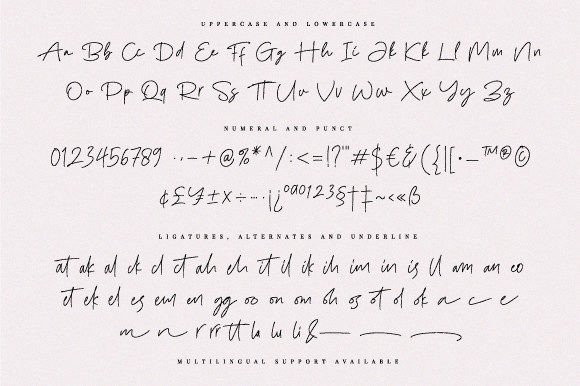 UPPERCASE AND LOWERCASE
Aa Bb Cc Dd Ee Ff Gg Hh Ii Jk Kk Ll Mm Nn
Oo Pp Qq Rr Ss Tt Uu Vv Ww Xx Yy Zz
NUMERAL AND PUNCT
0123456789 .,-+@%*^/:<=!?'"#$€&({|[•–™®©
¢£¥±×÷-··¡¿ºª0123§†‡~<«ß
LIGATURES, ALTERNATES AND UNDERLINE
at ak ck cl ct ah ch it il ik ih im in is ll am an eo
et ek el es em en gg oo on om oh os ot ol ok a c e
m n r rr tt la lu li &
MULTILINGUAL SUPPORT AVAILABLE